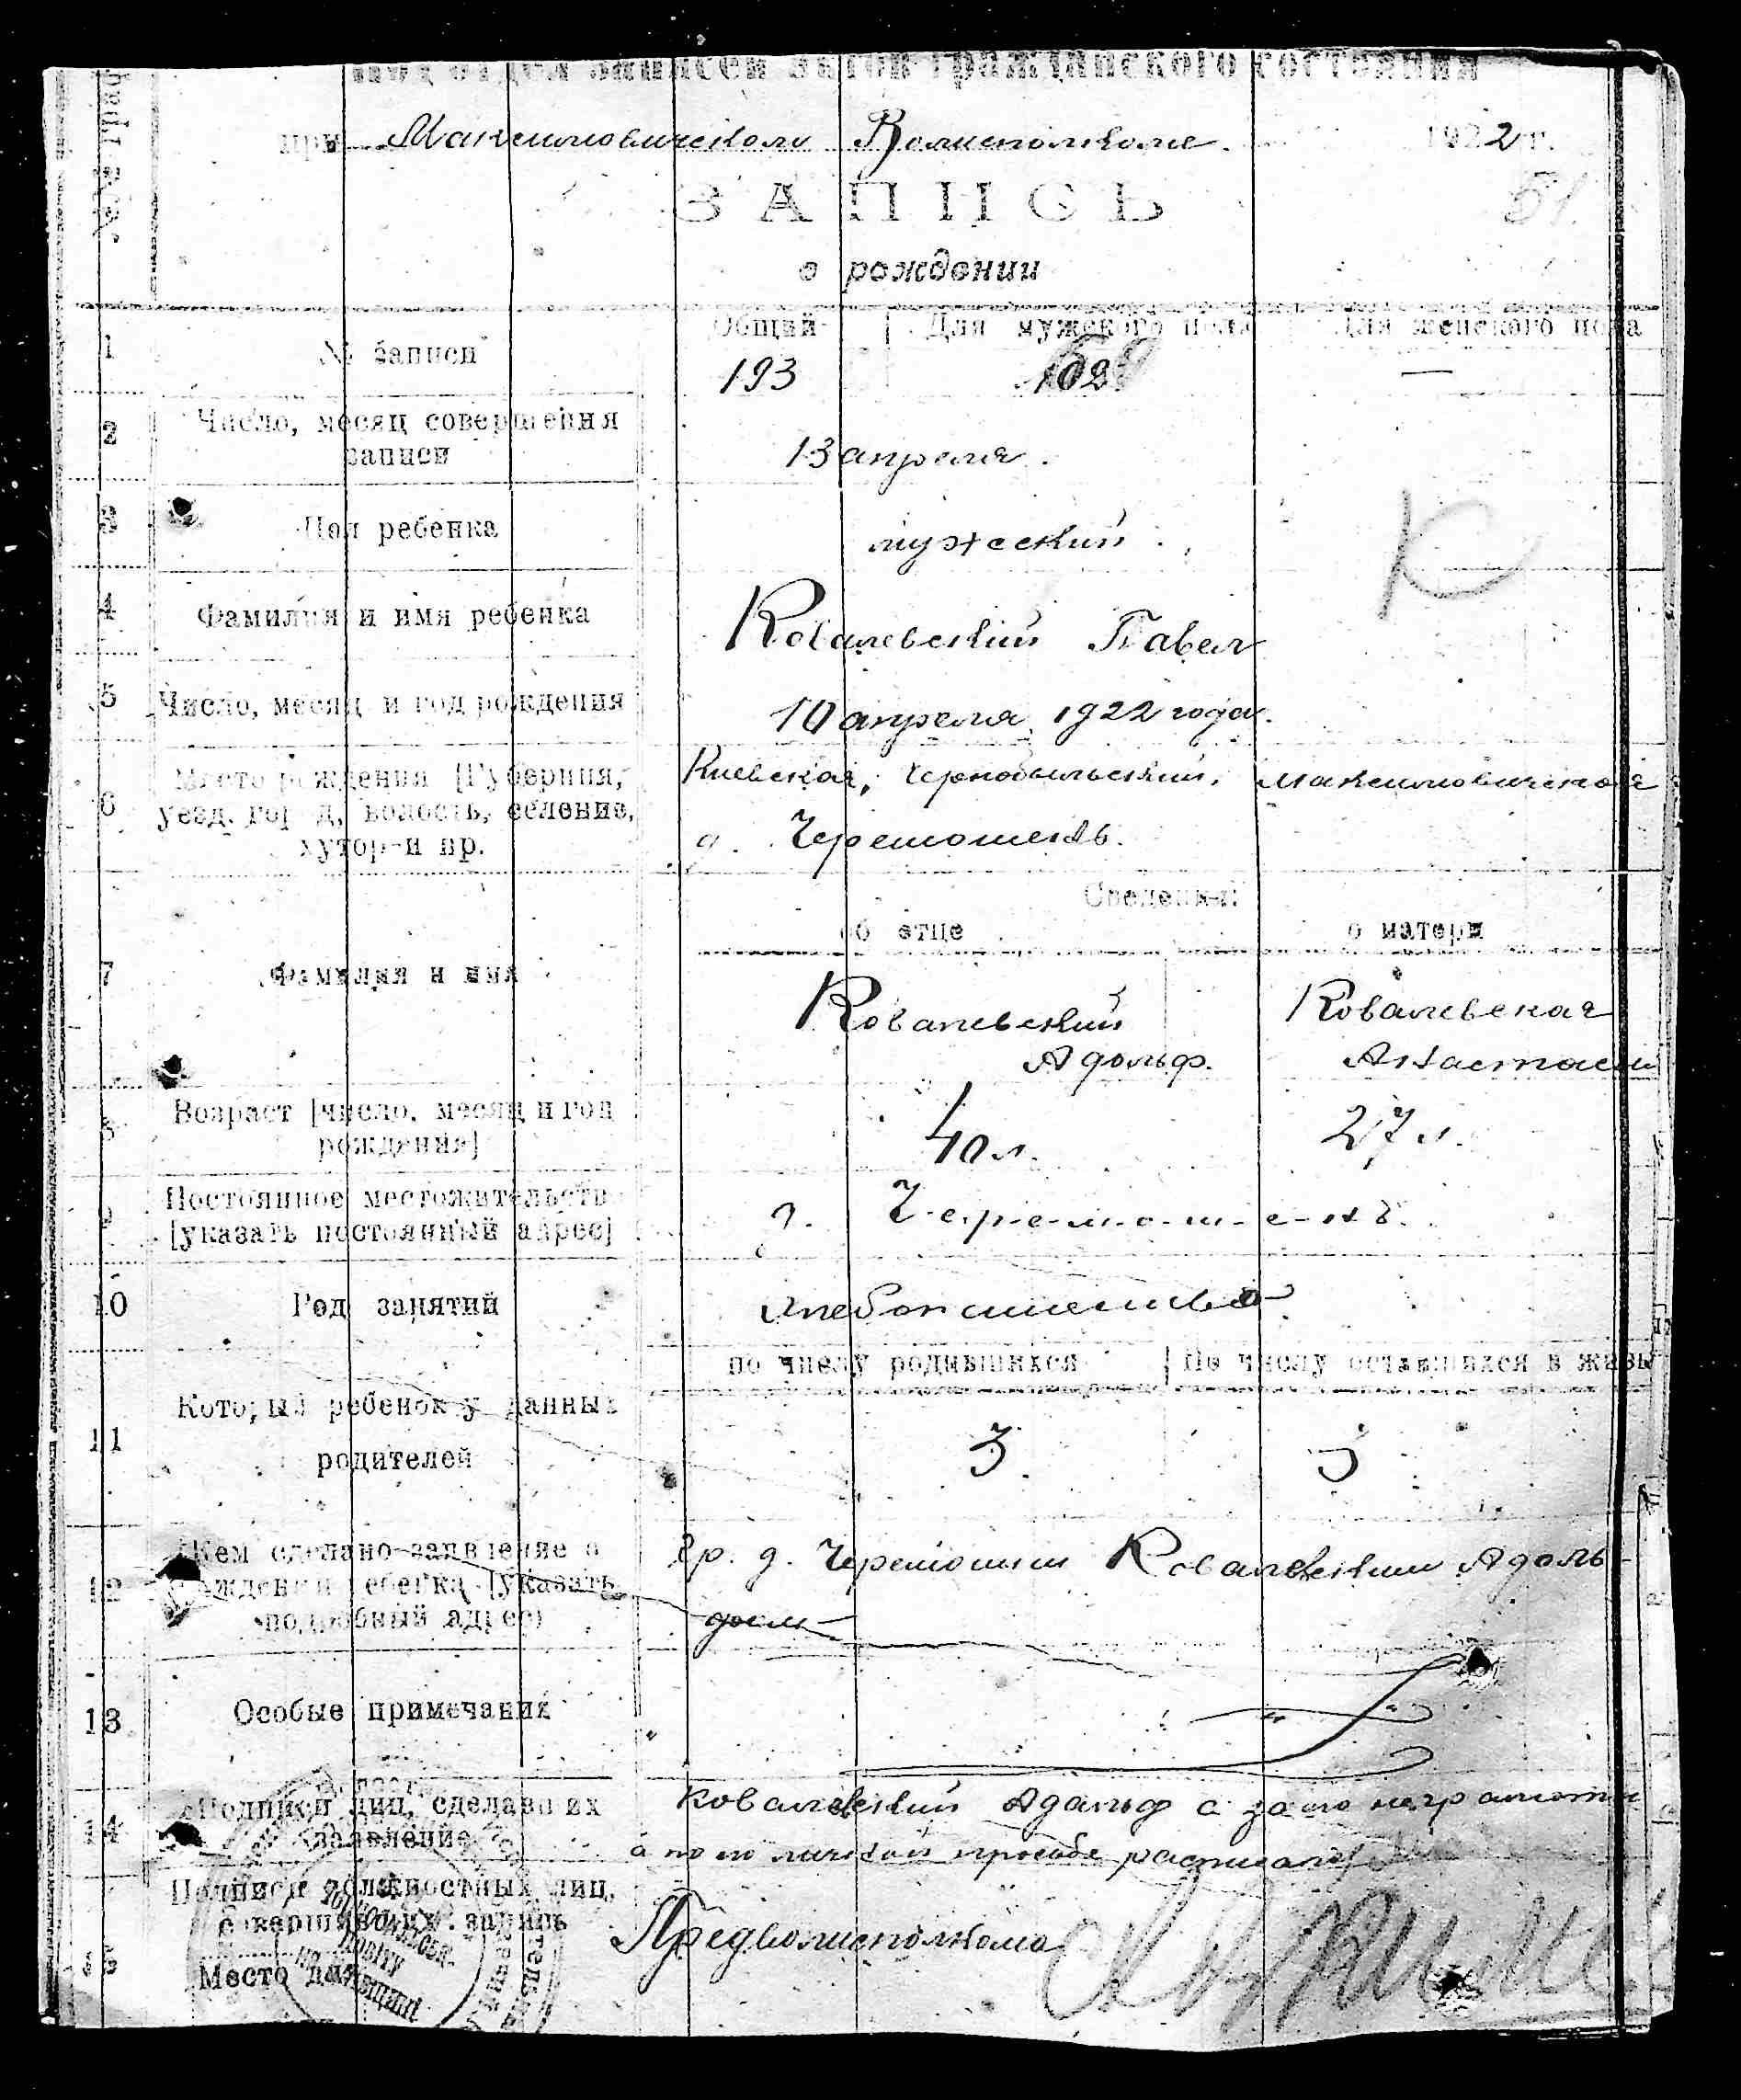 Подотдел записей актов гражданского состояния
при Максимовическом Волисполкоме. 1922 г.
51.
ЗАПИСЬ
о рождении
Общий Для мужского пола Для женского пола
1 № записи 193 —
2 Число, месяц совершения
записи 13 апреля.
3 Пол ребенка мужеский.
К
4 Фамилия и имя ребенка Ковалевский Павел
5 Число, месяц и год рождения 10 апреля 1922 года.
6 Место рождения [Губерния, Киевская, Чернобыльский, Максимовическая
уезд, город, волость, селение, д. Черемошень.
хутор и пр.
Сведения:
об отце о матери
7 Фамилия и имя Ковалевский Ковалевская
Адольф. Анастасия
8 Возраст [число, месяц и год
рождения] 40 л. 27 л.
9 Постоянное местожительство
[указать постоянный адрес] д. Ч-е-р-е-м-о-ш-е-н-ь.
10 Род занятий хлебопашество
по числу родившихся По числу оставшихся в живых
11 Который ребенок у данных
родителей 3 3
12 Кем сделано заявление о гр. д. Черемошни Ковалевским Адоль-
рождении ребенка [указать
подробный адрес] фом
13 Особые примечания "
14 Подписи лиц, сделавших Ковалевский Адольф а за его неграмотн
заявление а по его личной просьбе расписался
Подписи должностных лиц,
совершивших запись Предволисполкома
15
Место для